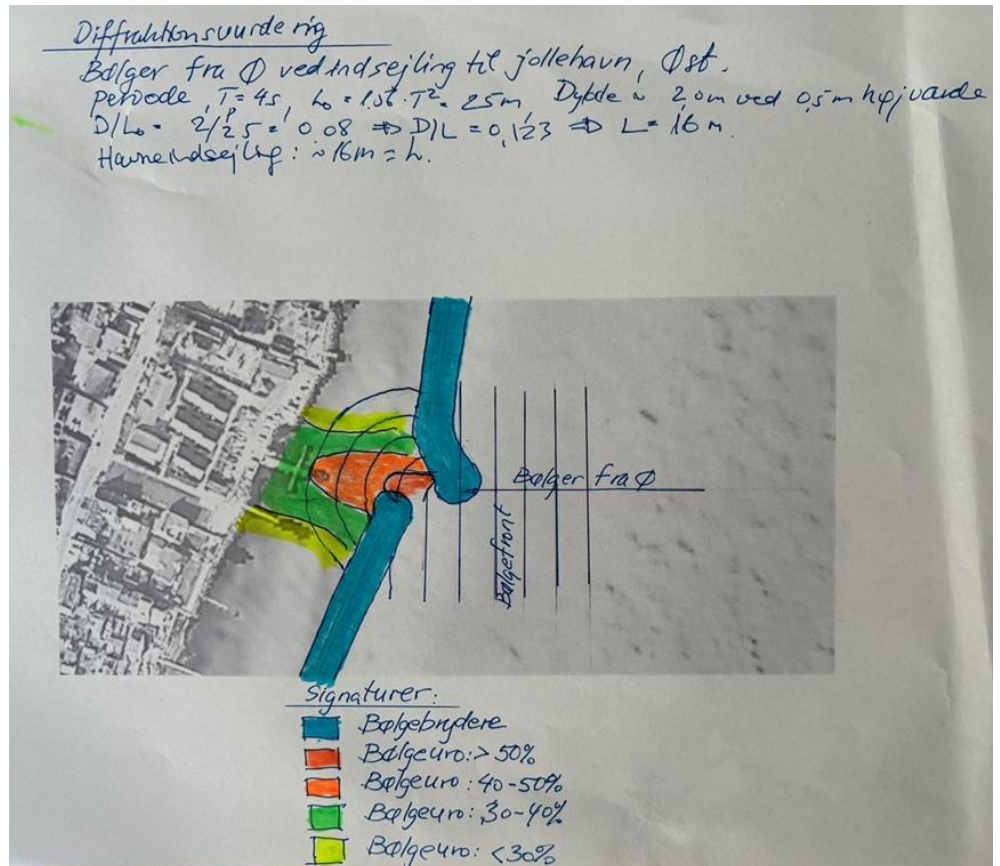 Diffraktionsvurdering
Bølger fra Ø ved indsejling til jollehavn, Øst.
Periode, Tp = 4s, L₀ = 1,56·T² = 25m, Dybde ~ 2,0m ved 0,5m højvande
D/L₀ = 2/25 = 0,08 => D/L = 0,123 => L = 16 m.
Havneindsejling: ~16m = L.
Bølger fra Ø
Bølgefront
Signaturer:
Bølgebrydere
Bølgeuro: > 50%
Bølgeuro: 40-50%
Bølgeuro: 30-40%
Bølgeuro: <30%